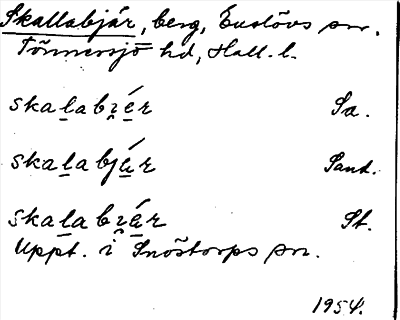 Skallabjär, berg, Eneslövs sn.
Tönnersjö hd, Hall. l.
skalabɪ̯ér Sa.
skalabjár Sand.
skalabɪ̯ár St.
Uppt. i Snöstorps sn.
1954.